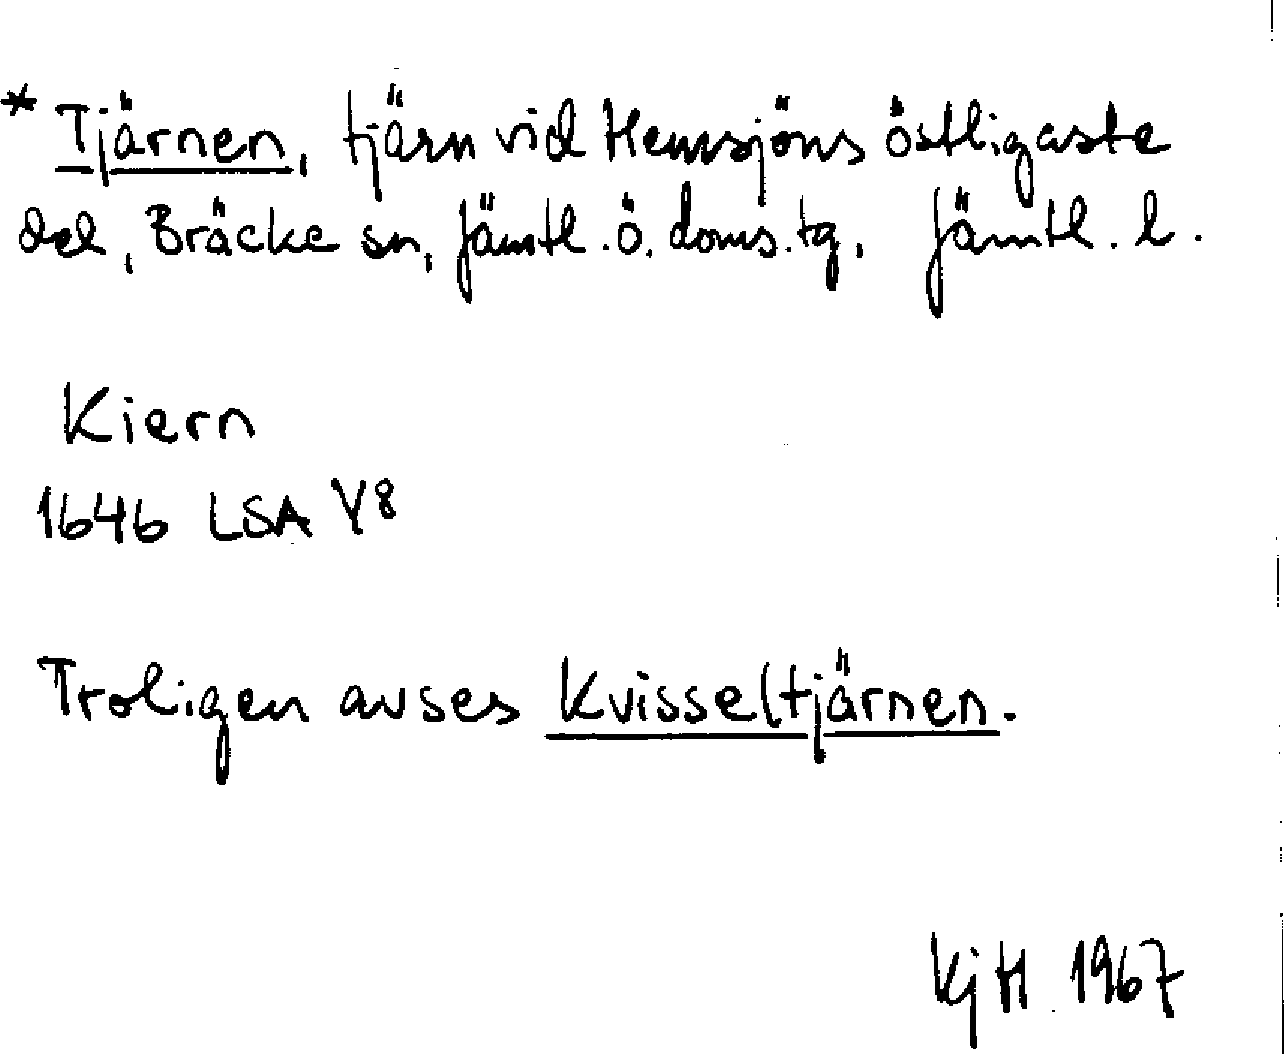 * Tjärnen, tjärn vid Hemsjöns östligaste
del, Bräcke sn, Jämtl. ö. doms. tg, Jämtl. l.
Kiern
1646 LSA Y8
Troligen avses Kvisseltjärnen.
KjH 1967